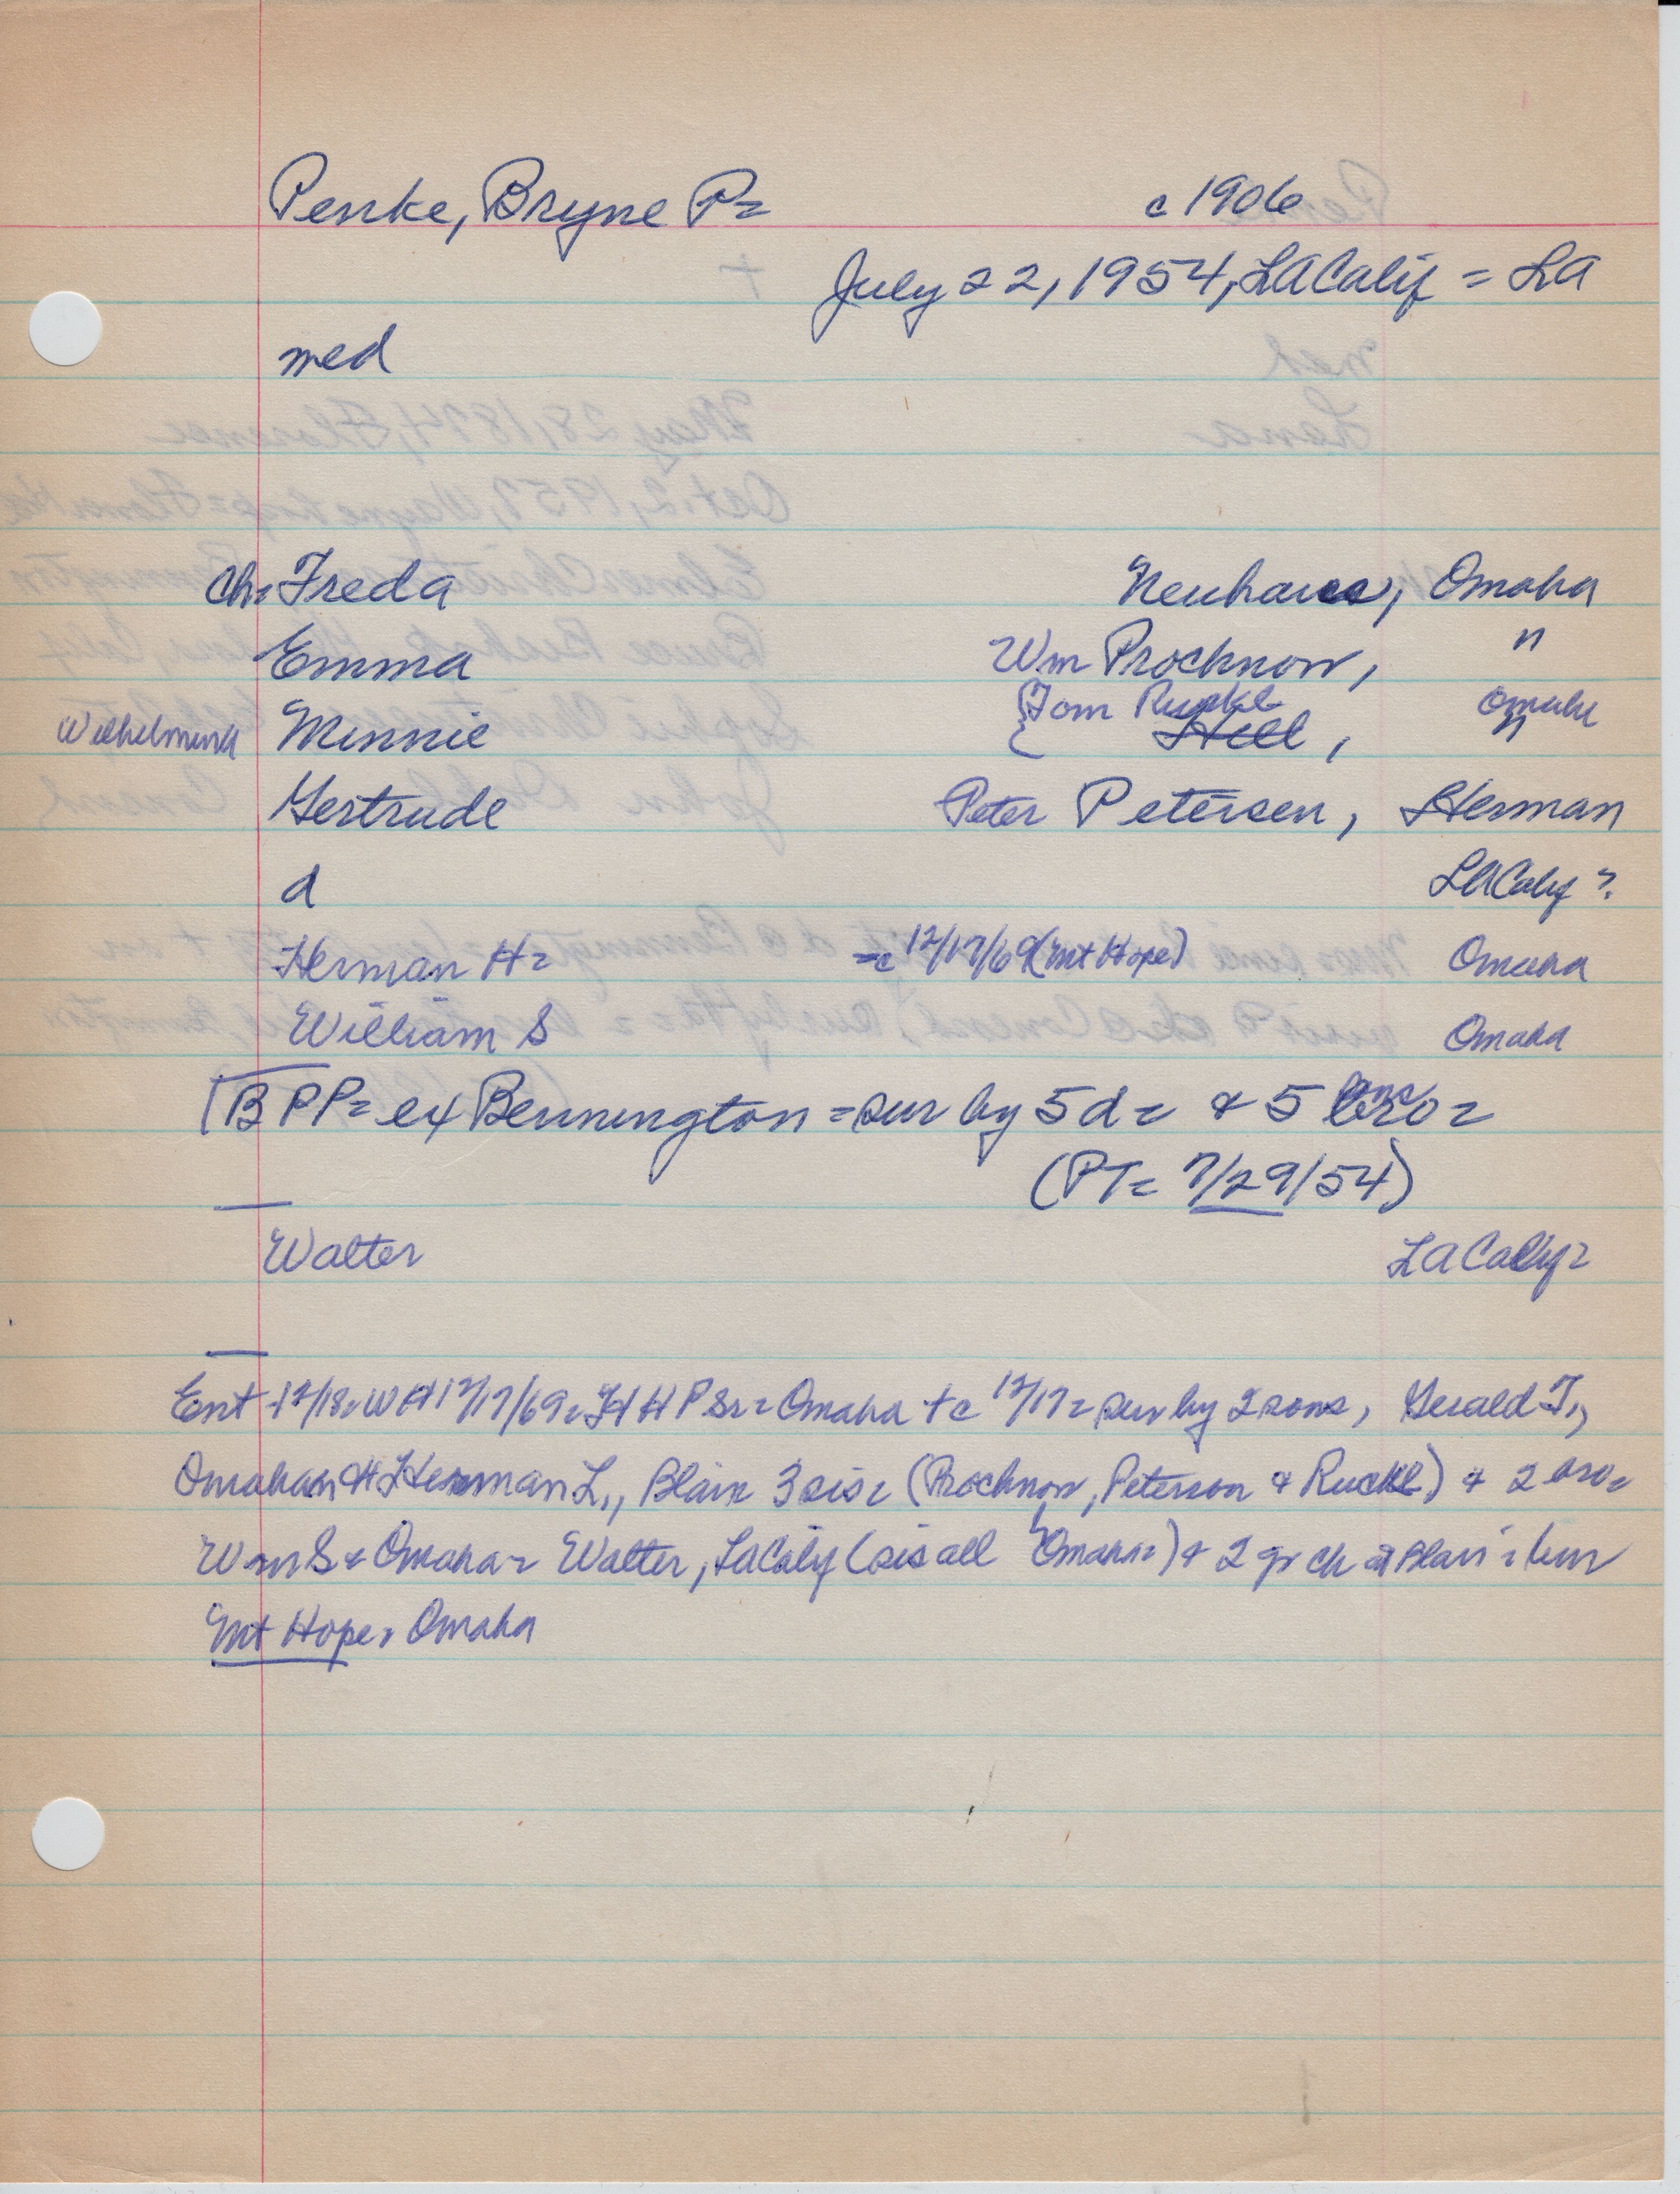 Penke, Bryne P= c 1906
July 22, 1954, LA Calif = LA
med
ch= Freda Neuhaus, Omaha
Emma Wm Prochnow, "
Wilhelmina Minnie {Tom Ruckl Omaha
Hill, "
Gertrude Peter Petersen, Herman
d LA Calif ?
Herman H= =c 12/17/69 (Mt Hope) Omaha
William S Omaha
BPP= ex Bennington = sur by 5 d= & 5 sons=
(PT= 7/29/54)
Walter LA Calif=
Ent 12/18= WH 12/17/69= HHP Sr= Omaha + c 12/17= sur by 2 sons, Gerald T.,
Omaha & Herman L., Blair 3 sis= (Prochnow, Peterson & Ruckl) & 2 bro=
Wm S & Omaha= Walter, LA Calif (sis all Omaha=) & 2 gr ch at Blair= bur
Mt Hope= Omaha